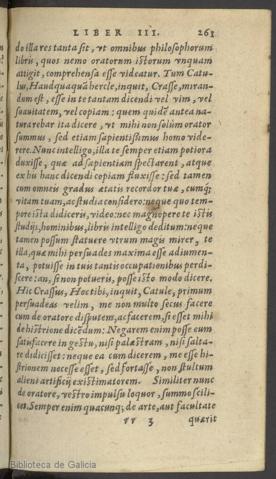 LIBER III. 261
do illa res tanta sit, vt omnibus philosophorum
libris, quos nemo oratorum istorum vnquam
attigit, comprehensa esse videatur. Tum Catu-
lus, Haudquaquã hercle, inquit, Crasse, miran-
dum est, esse in te tantam dicendi vel vim, vel
suauitatem, vel copiam: quem quidẽ antea na-
tura rebar ita dicere, vt mihi non solùm orator
summus, sed etiam sapientissimus homo vide-
rere. Nunc intelligo, illa te semper etiam potiora
duxisse, quæ ad sapientiam spectarent, atque
ex hu hanc dicendi copiam fluxisse: sed tamen
cum omneis gradus ætatis recordor tuæ, cumq́;
vitam tuam, ac studia considero: neque quo tem-
pore ista didiceris, video: nec magnopere te istis
studijs, hominibus, libris intelligo deditum: neque
tamen possum statuere vtrum magis mirer, te
illa, quæ mihi persuades maxima esse adiumen-
ta, potuisse in tuis tantis occupationibus perdi-
scere: an, si non potueris, posse isto modo dicere.
Hic Crassus, Hoc tibi, inquit, Catule, primum
persuadeas velim, me non multo secus facere
cum de oratore disputem, ac facerem, si esset mihi
de histrione dicẽdum: Negarem enim posse eum
satisfacere in gestu, nisi palæstram, nisi salta-
re didicisset: neque ea cum dicerem, me esse hi-
strionem necesse esset, sed fortasse, non stultum
alieni artificij existimatorem. Similiter nunc
de oratore, vestro impulsu loquor, summo scili-
cet. Semper enim quacunq́; de arte, aut facultate
rr 3 quærit
Biblioteca de Galicia